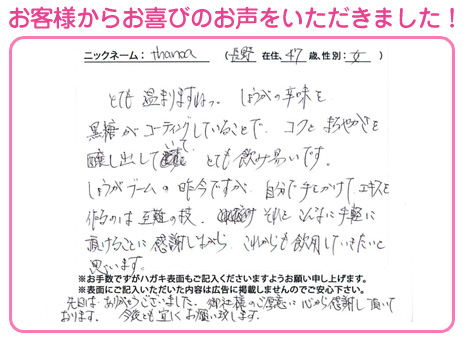 お客様からお喜びのお声をいただきました！
ニックネーム： thanaa （長野 在住、47 歳、性別：女 ）
とても 温まりますねっ。しょうがの辛味を
黒糖がコーティングしていることで、コクと まろやかさを
醸し出していて とても飲み易いです。
しょうがブームの昨今ですが、自分で手しかけて、エキスを
作るのは 至難の技、それに こんなに手軽に
頂けることに感謝しながら、これからも飲用していきたいと
思います。
※お手数ですがハガキ表面もご記入くださいますようお願い申し上げます。
※表面にご記入いただいた内容は広告に掲載しませんのでご安心下さい。
先日は ありがとうございました。御社様のご厚意に 心から感謝して頂いて
おります。今後とも宜しくお願い致します。